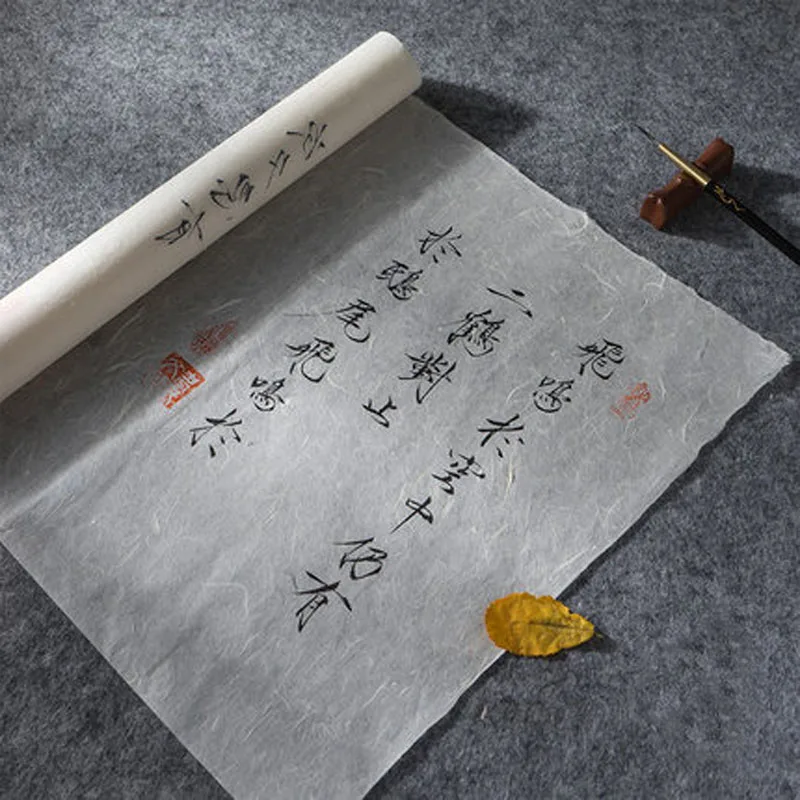 飛鳴於空中仍有
二鶴對上
於鴟尾飛鳴於